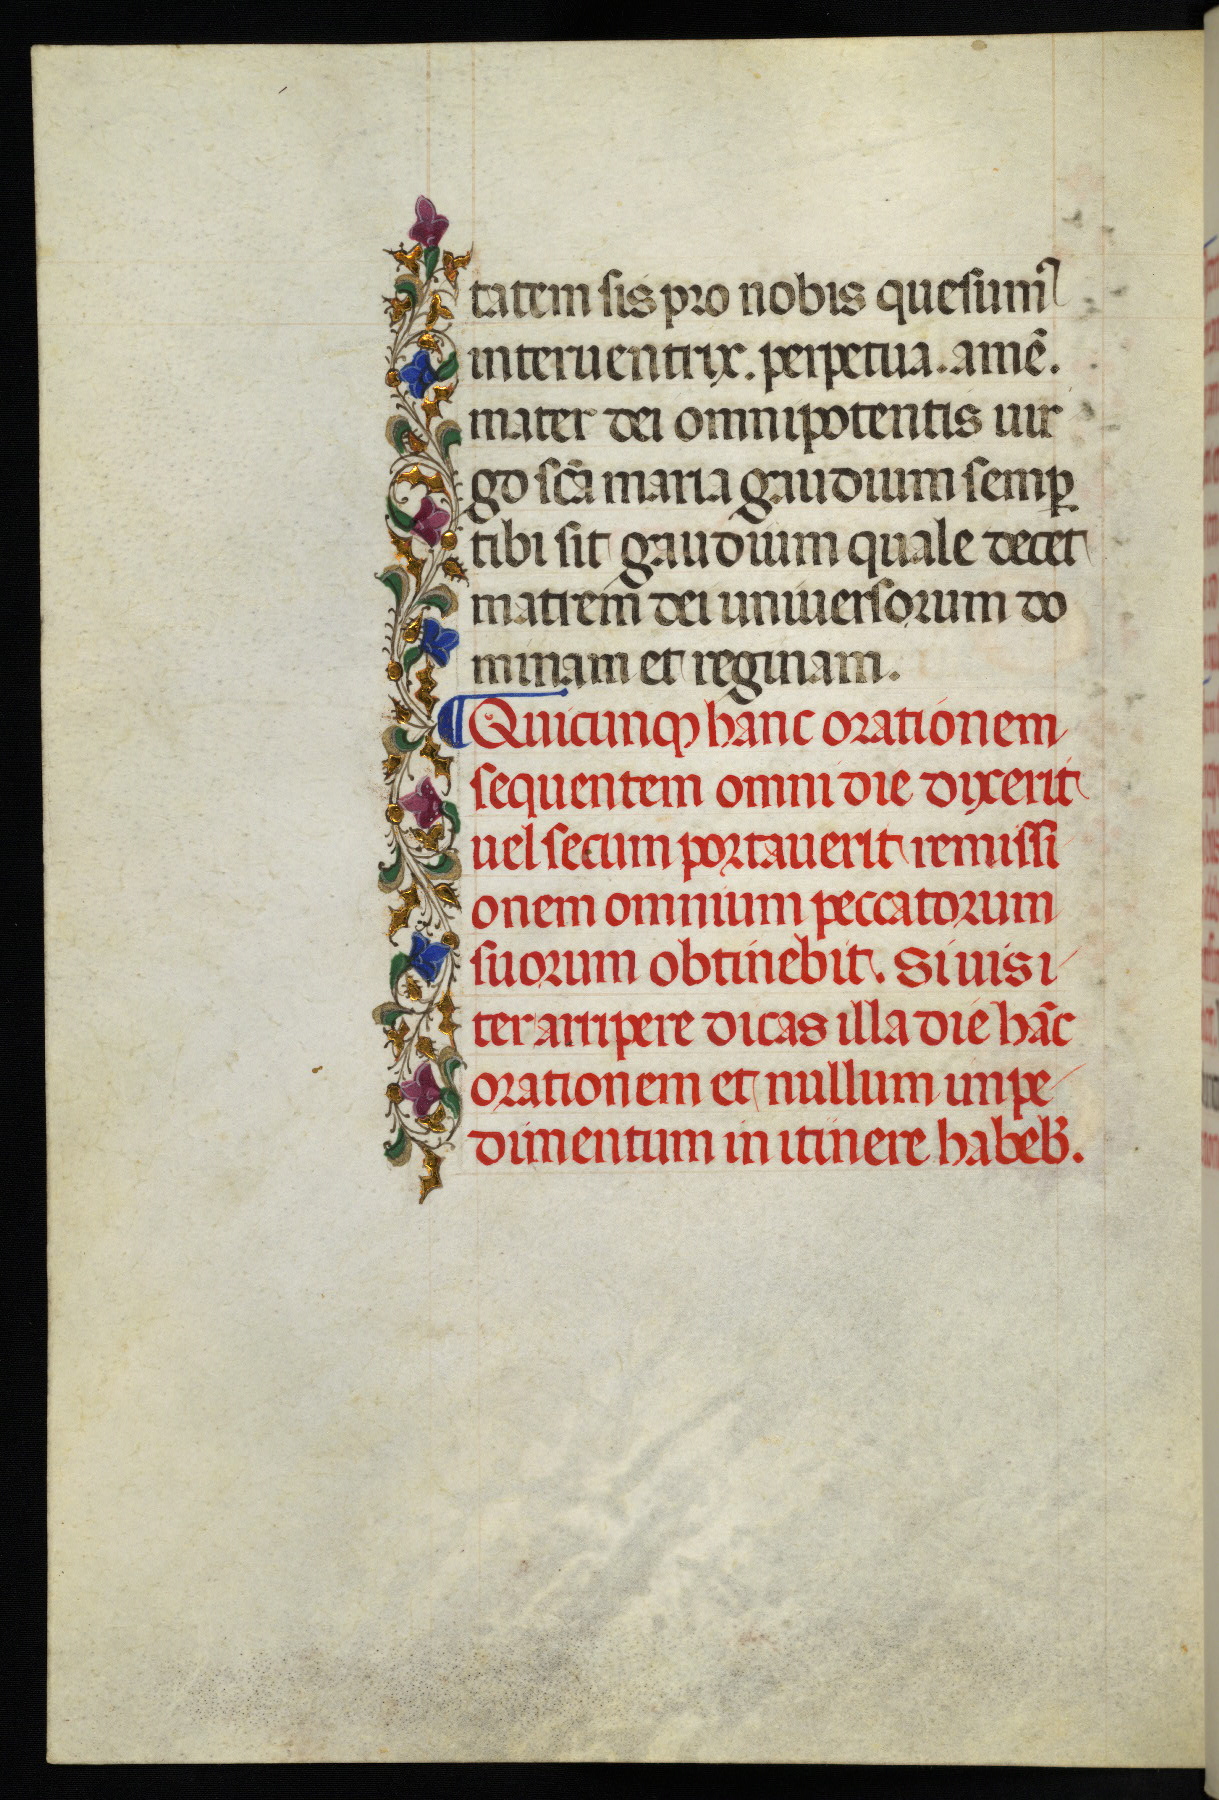 tatem sis pro nobis quesumꝰ
interuentrix. perpetua. amē.
mater dei omnipotentis uir
go scā maria gaudium semꝑ
tibi sit gaudium quale decet
matrem dei uniuersorum do
minam et reginam.
¶Quicunqꝫ hanc orationem
sequentem omni die dixerit
uel secum portauerit remissi
onem omnium peccatorum
suorum obtinebit. Si uis i
ter arripere dicas illa die hāc
orationem et nullum impe
dimentum in itinere habeb̄.